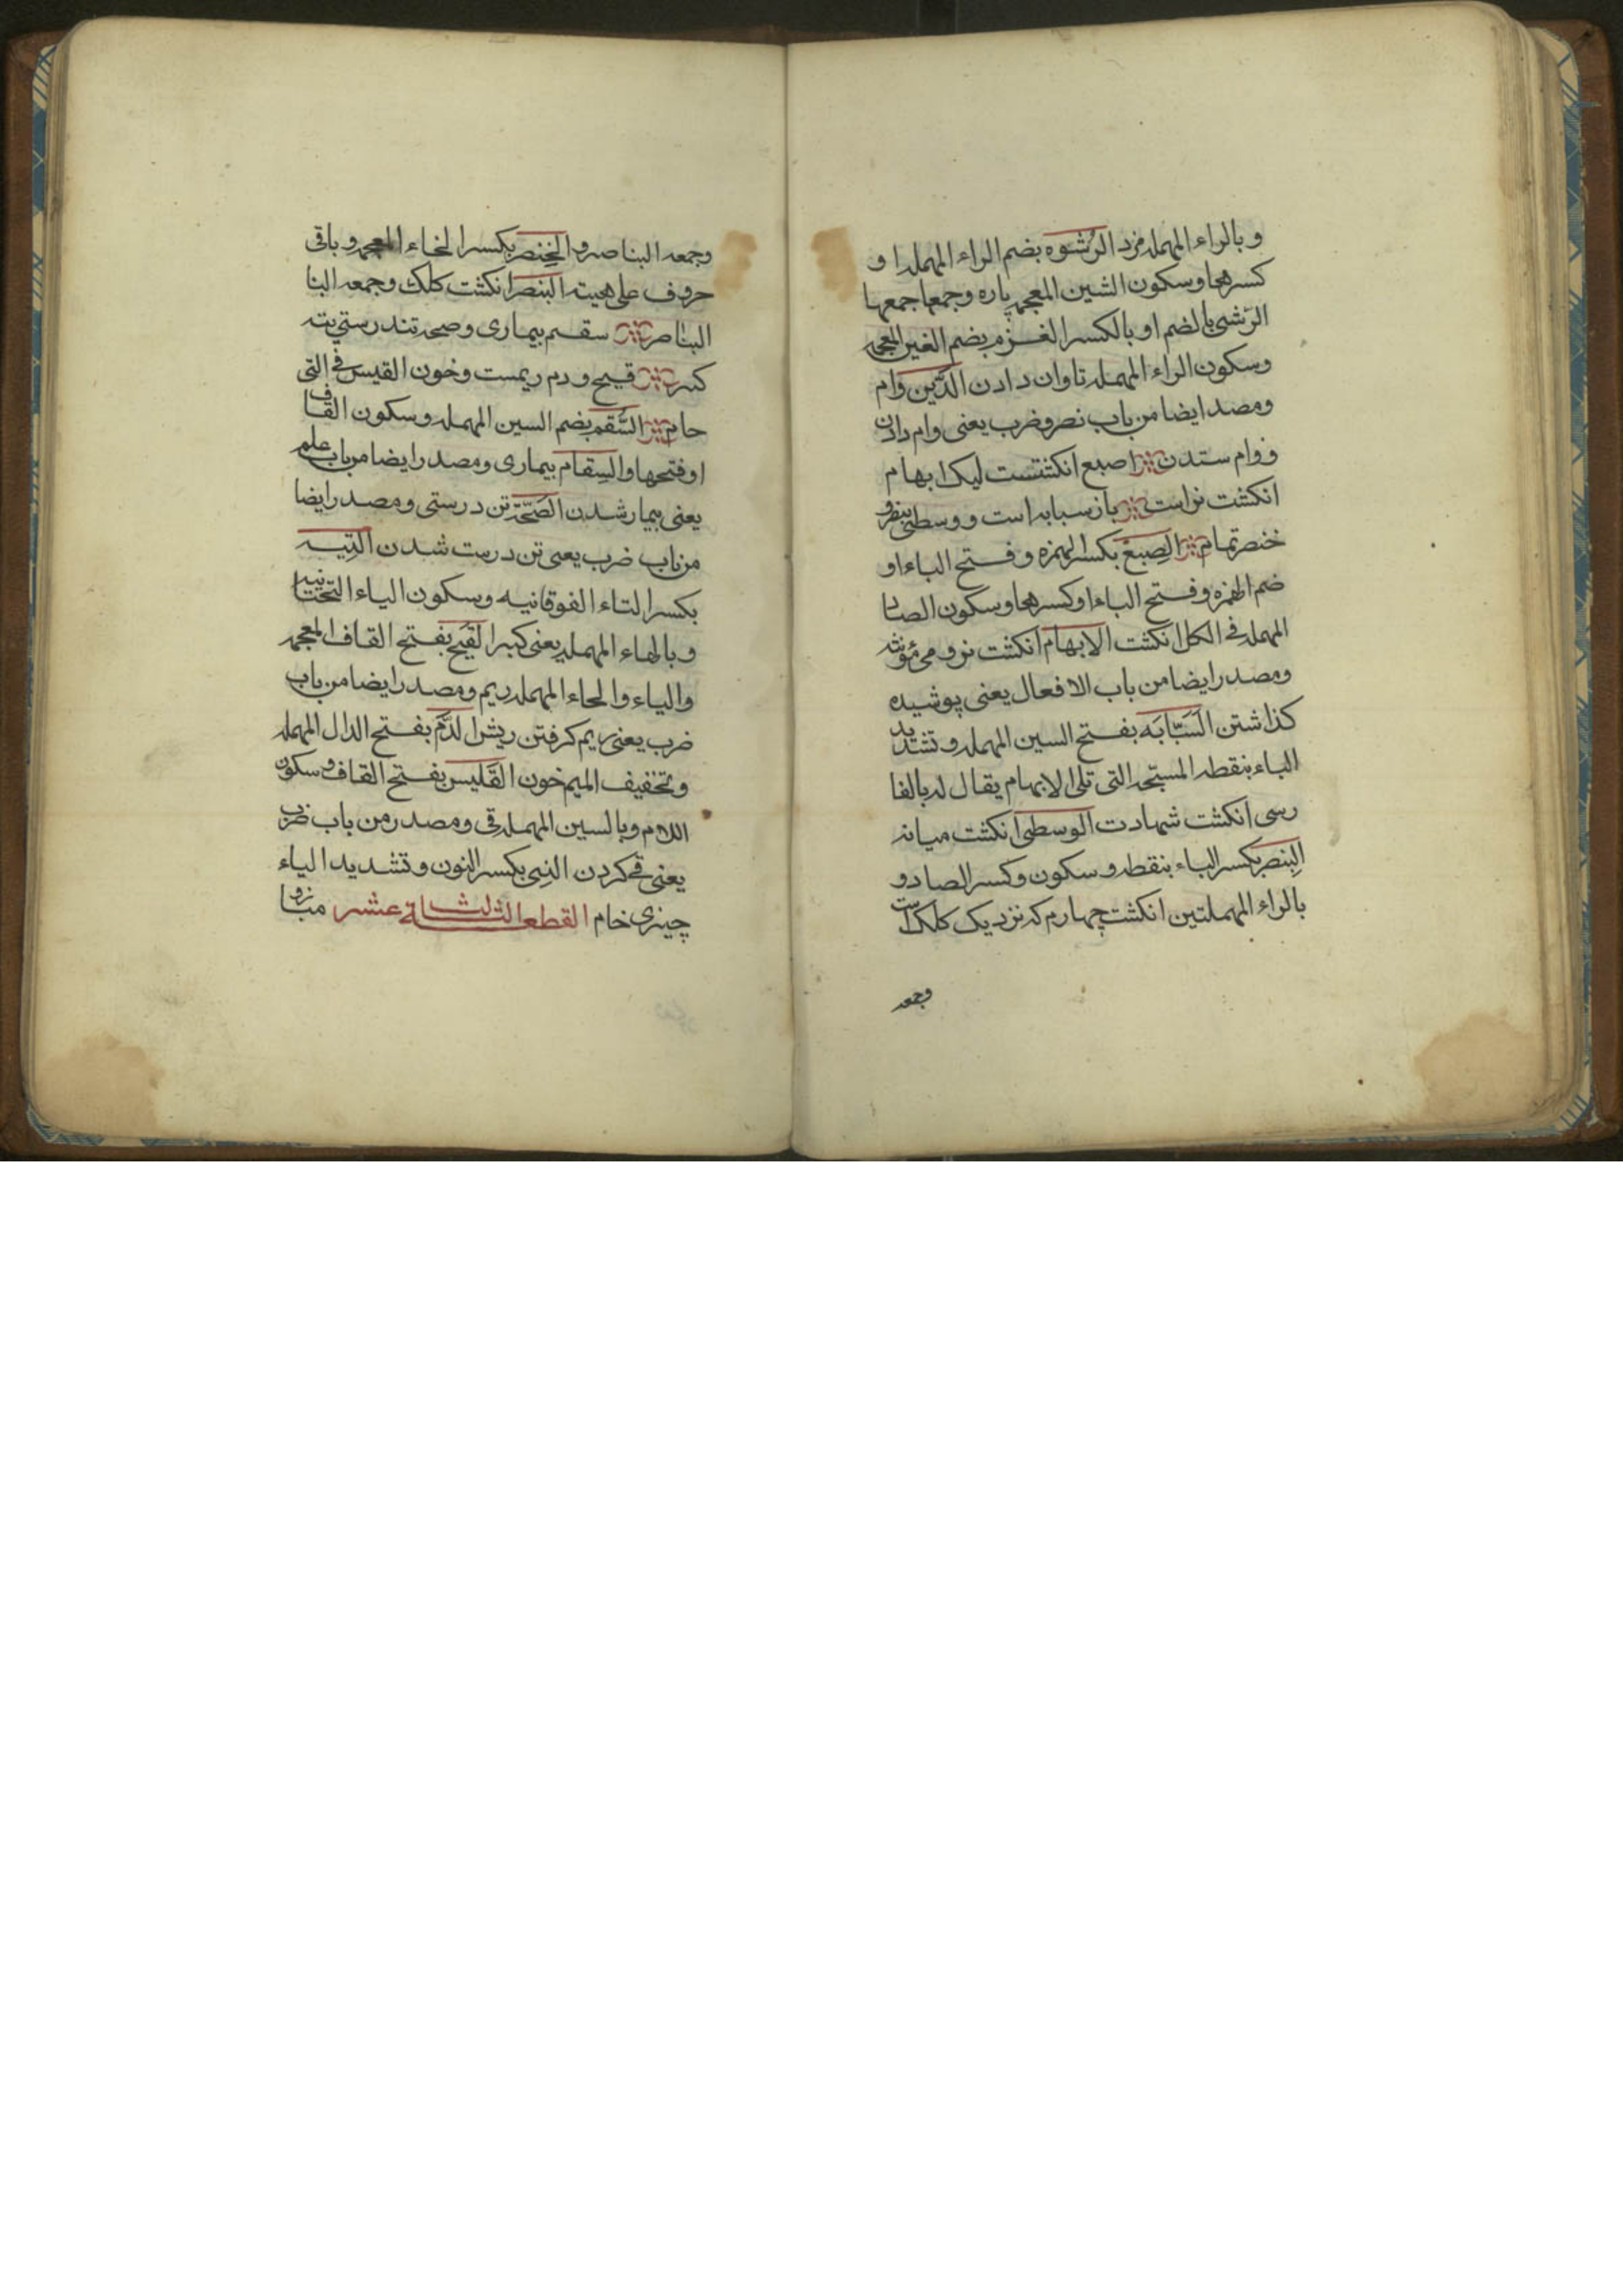 وبالراء المهمله مزد الرُشوه بضم الراء المهمله او
كسرهما وسكون الشين المعجمه پاره وجمعها جمعها
الرشی بالضم او بالکسر الغرم بضم الغین المعجمه
وسکون الراء المهمله تاوان دادن الدَّین وام
ومصد ایضا من باب نصر وضرب یعنی وام دادن
و وام ستدن اصبع انکشتست لیک ابهام
انکشت نراست باز سبابه است و وسطی بنصر و
خنصر تمام الصِبَغ بکسر الهمزه وفتح الباء او
ضم الهمزه وفتح الباء او کسرهما وسکون الصاد
المهمله فی الکل انکشت الابهام انکشت نر و می مؤنثه
ومصدر ایضا من باب الافعال یعنی پوشیده
کذاشتن السَبّابَه بفتح السین المهمله و تشدید
الباء بنقطه المسبحه التی تلی الابهام یقال له بالفا
رسی انکشت شهادت الوسطی انکشت میانه
البِنصِر بکسر الباء بنقطه و سکون وکسر الصاد و
بالراء المهملتین انکشت چهارم که نزدیک کلک است
وجمعه
وجمعه البناصر والخِنصِر بکسر الخاء المعجمه و باقی
حروف علی هیته البنصر انکشت کلک وجمعه البنا
البناصر سقم بیماری و صحه تندرستی تیه
کبر قیح و دم ریمست وخون القیس فی التی
حام السُّقم بضم السین المهمله وسکون القاف
او فتحها والسِقام بیماری و مصدر ایضا من باب علم
یعنی بیمار شدن الصَحّة تن درستی و مصدر ایضا
من باب ضرب یعنی تن درست شدن التِیه
بکسر التاء الفوقانیه وسکون الیاء التحتانیه
وبالهاء المهمله یعنی کبر القَیح بفتح القاف المعجمه
والیاء والحاء المهمله ریم و مصدر ایضا من باب
ضرب یعنی ریم کرفتن ریش الدَّم بفتح الدال المهمله
وتخفیف المیم خون القَلیس بفتح القاف و سکون
اللام وبالسین المهمله قی و مصدر من باب ضرب
یعنی قی کردن النِی بکسر النون وتشدید الیاء
چیزی خام القطعه الثلثاة عشر